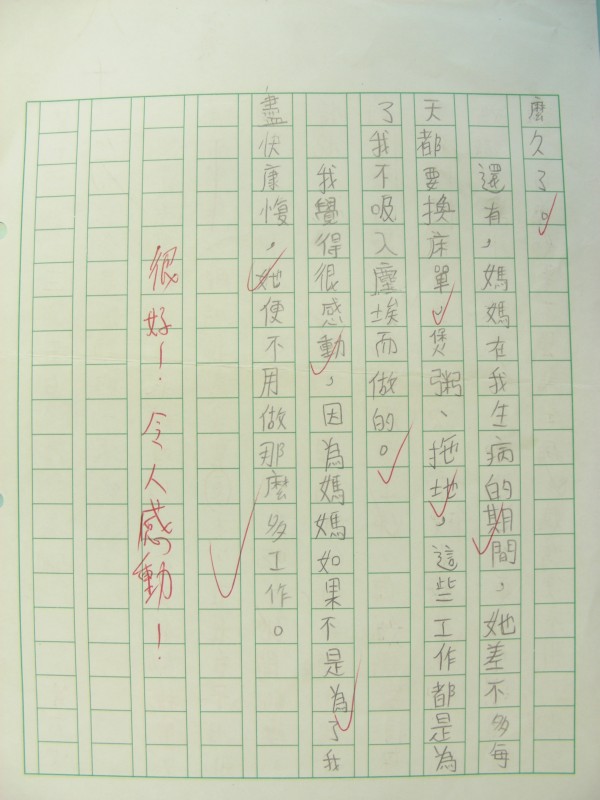 麼久了。
還有，媽媽在我生病的期間，她差不多每
天都要換床單、煲粥、拖地，這些工作都是為
了我不吸入塵埃而做的。
我覺得很感動，因為媽媽如果不是為了我
盡快康愎，她便不用做那麼多工作。
很好！令人感動！